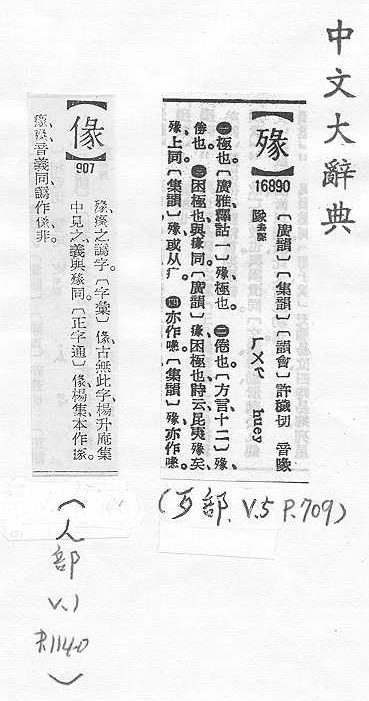 中文大辭典
【殩】
16890
〔廣韻〕〔集韻〕〔韻會〕許穢切 音喙
ㄏㄨㄟ huey
㊀極也。〔廣雅釋詁一〕殩、極也。㊁倦也。〔方言十二〕殩、
倦也。㊂困極也與瘃同。〔廣韻〕瘃、困極也、詩云、昆夷瘃矣、
殩上同。〔集韻〕殩、或从疒。㊃亦作喙。〔集韻〕殩、亦作喙。
(歹部、V.5 P.709)
【㒸】
907
殩、瘃之譌字。〔字彙〕㒸、古無此字、楊升庵集
中見之、義與殩同。〔正字通〕㒸、楊集本作
音義同、譌作㒸、非。
(人部 V.1 P.1140)